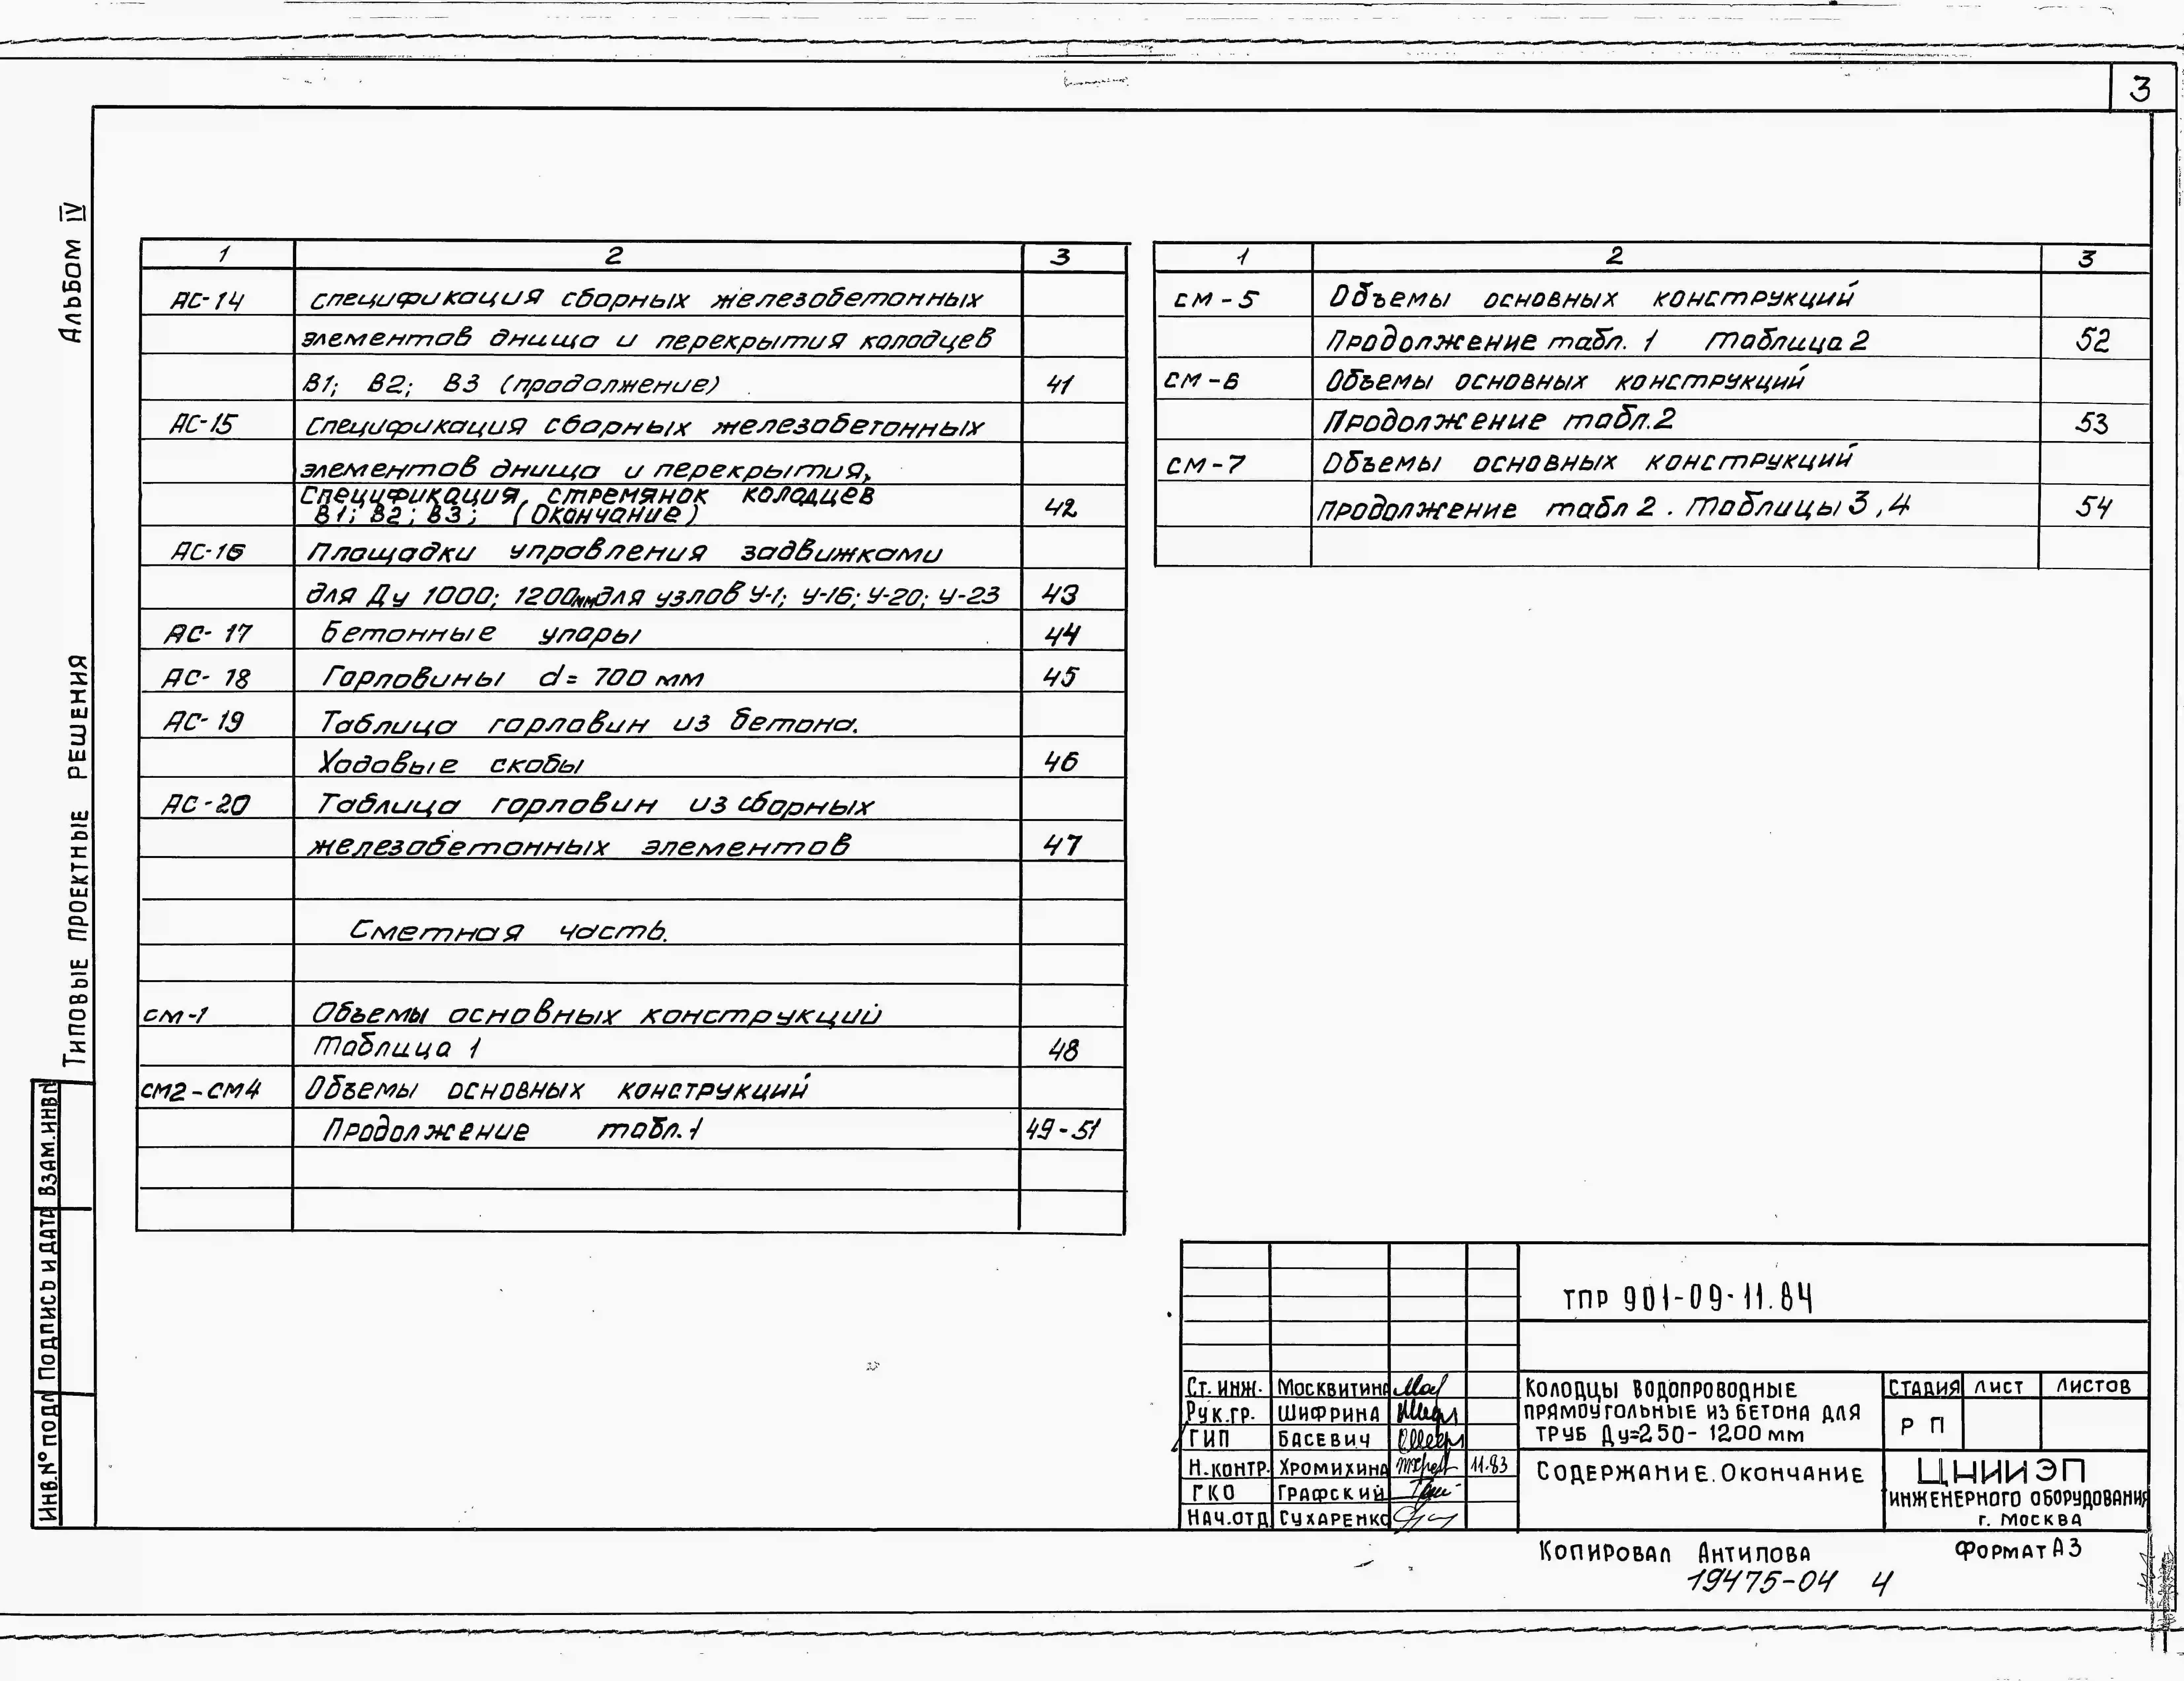 3
Альбом IV
Типовые проектные решения
1 2 3
АС-14 спецификация сборных железобетонных
элементов днища и перекрытия колодцев
В1; В2; В3 (продолжение) 41
АС-15 Спецификация сборных железобетонных
элементов днища и перекрытия,
Спецификация стремянок колодцев
В1; В2; В3; (Окончание) 42
АС-16 Площадки управления задвижками
для Ду 1000; 1200мм для узлов У-1; У-16; У-20; У-23 43
АС-17 Бетонные упоры 44
АС-18 Горловины d= 700 мм 45
АС-19 Таблица горловин из бетона.
Ходовые скобы 46
АС-20 Таблица горловин из сборных
железобетонных элементов 47
Сметная часть.
см-1 Объемы основных конструкций
Таблица 1 48
см2-см4 Объемы основных конструкций
Продолжение табл.1 49-51
1 2 3
см-5 Объемы основных конструкций
Продолжение табл. 1 Таблица 2 52
см-6 Объемы основных конструкций
Продолжение табл.2 53
см-7 Объемы основных конструкций
продолжение табл 2. Таблицы 3,4 54
Взам.инв.№
Подпись и дата
Инв.№ подл
ТПР 901-09-11.84
Ст. инж. Москвитина
Рук.гр. Шифрина
ГИП Басевич
Н.контр. Хромихина 11.83
ГКО Графский
Нач.отд Сухаренко
Колодцы водопроводные
прямоугольные из бетона для
труб Ду=250-1200 мм
Стадия Лист Листов
Р П
Содержание. Окончание
ЦНИИЭП
инженерного оборудования
г. Москва
Копировал Антипова Формат А3
19475-04 4